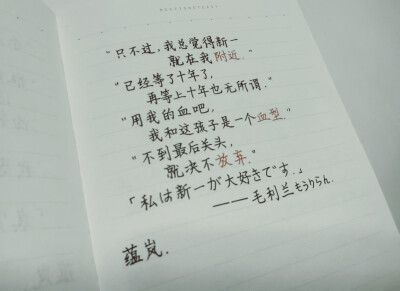 “只不过,我总觉得新一
就在我附近.”
“已经等了十年了,
再等上十年也无所谓.”
“用我的血吧,
我和这孩子是一个血型.”
“不到最后关头,
就决不放弃.”
「私は新一が大好きです.」
——毛利兰もうりらん.
蕴岚.